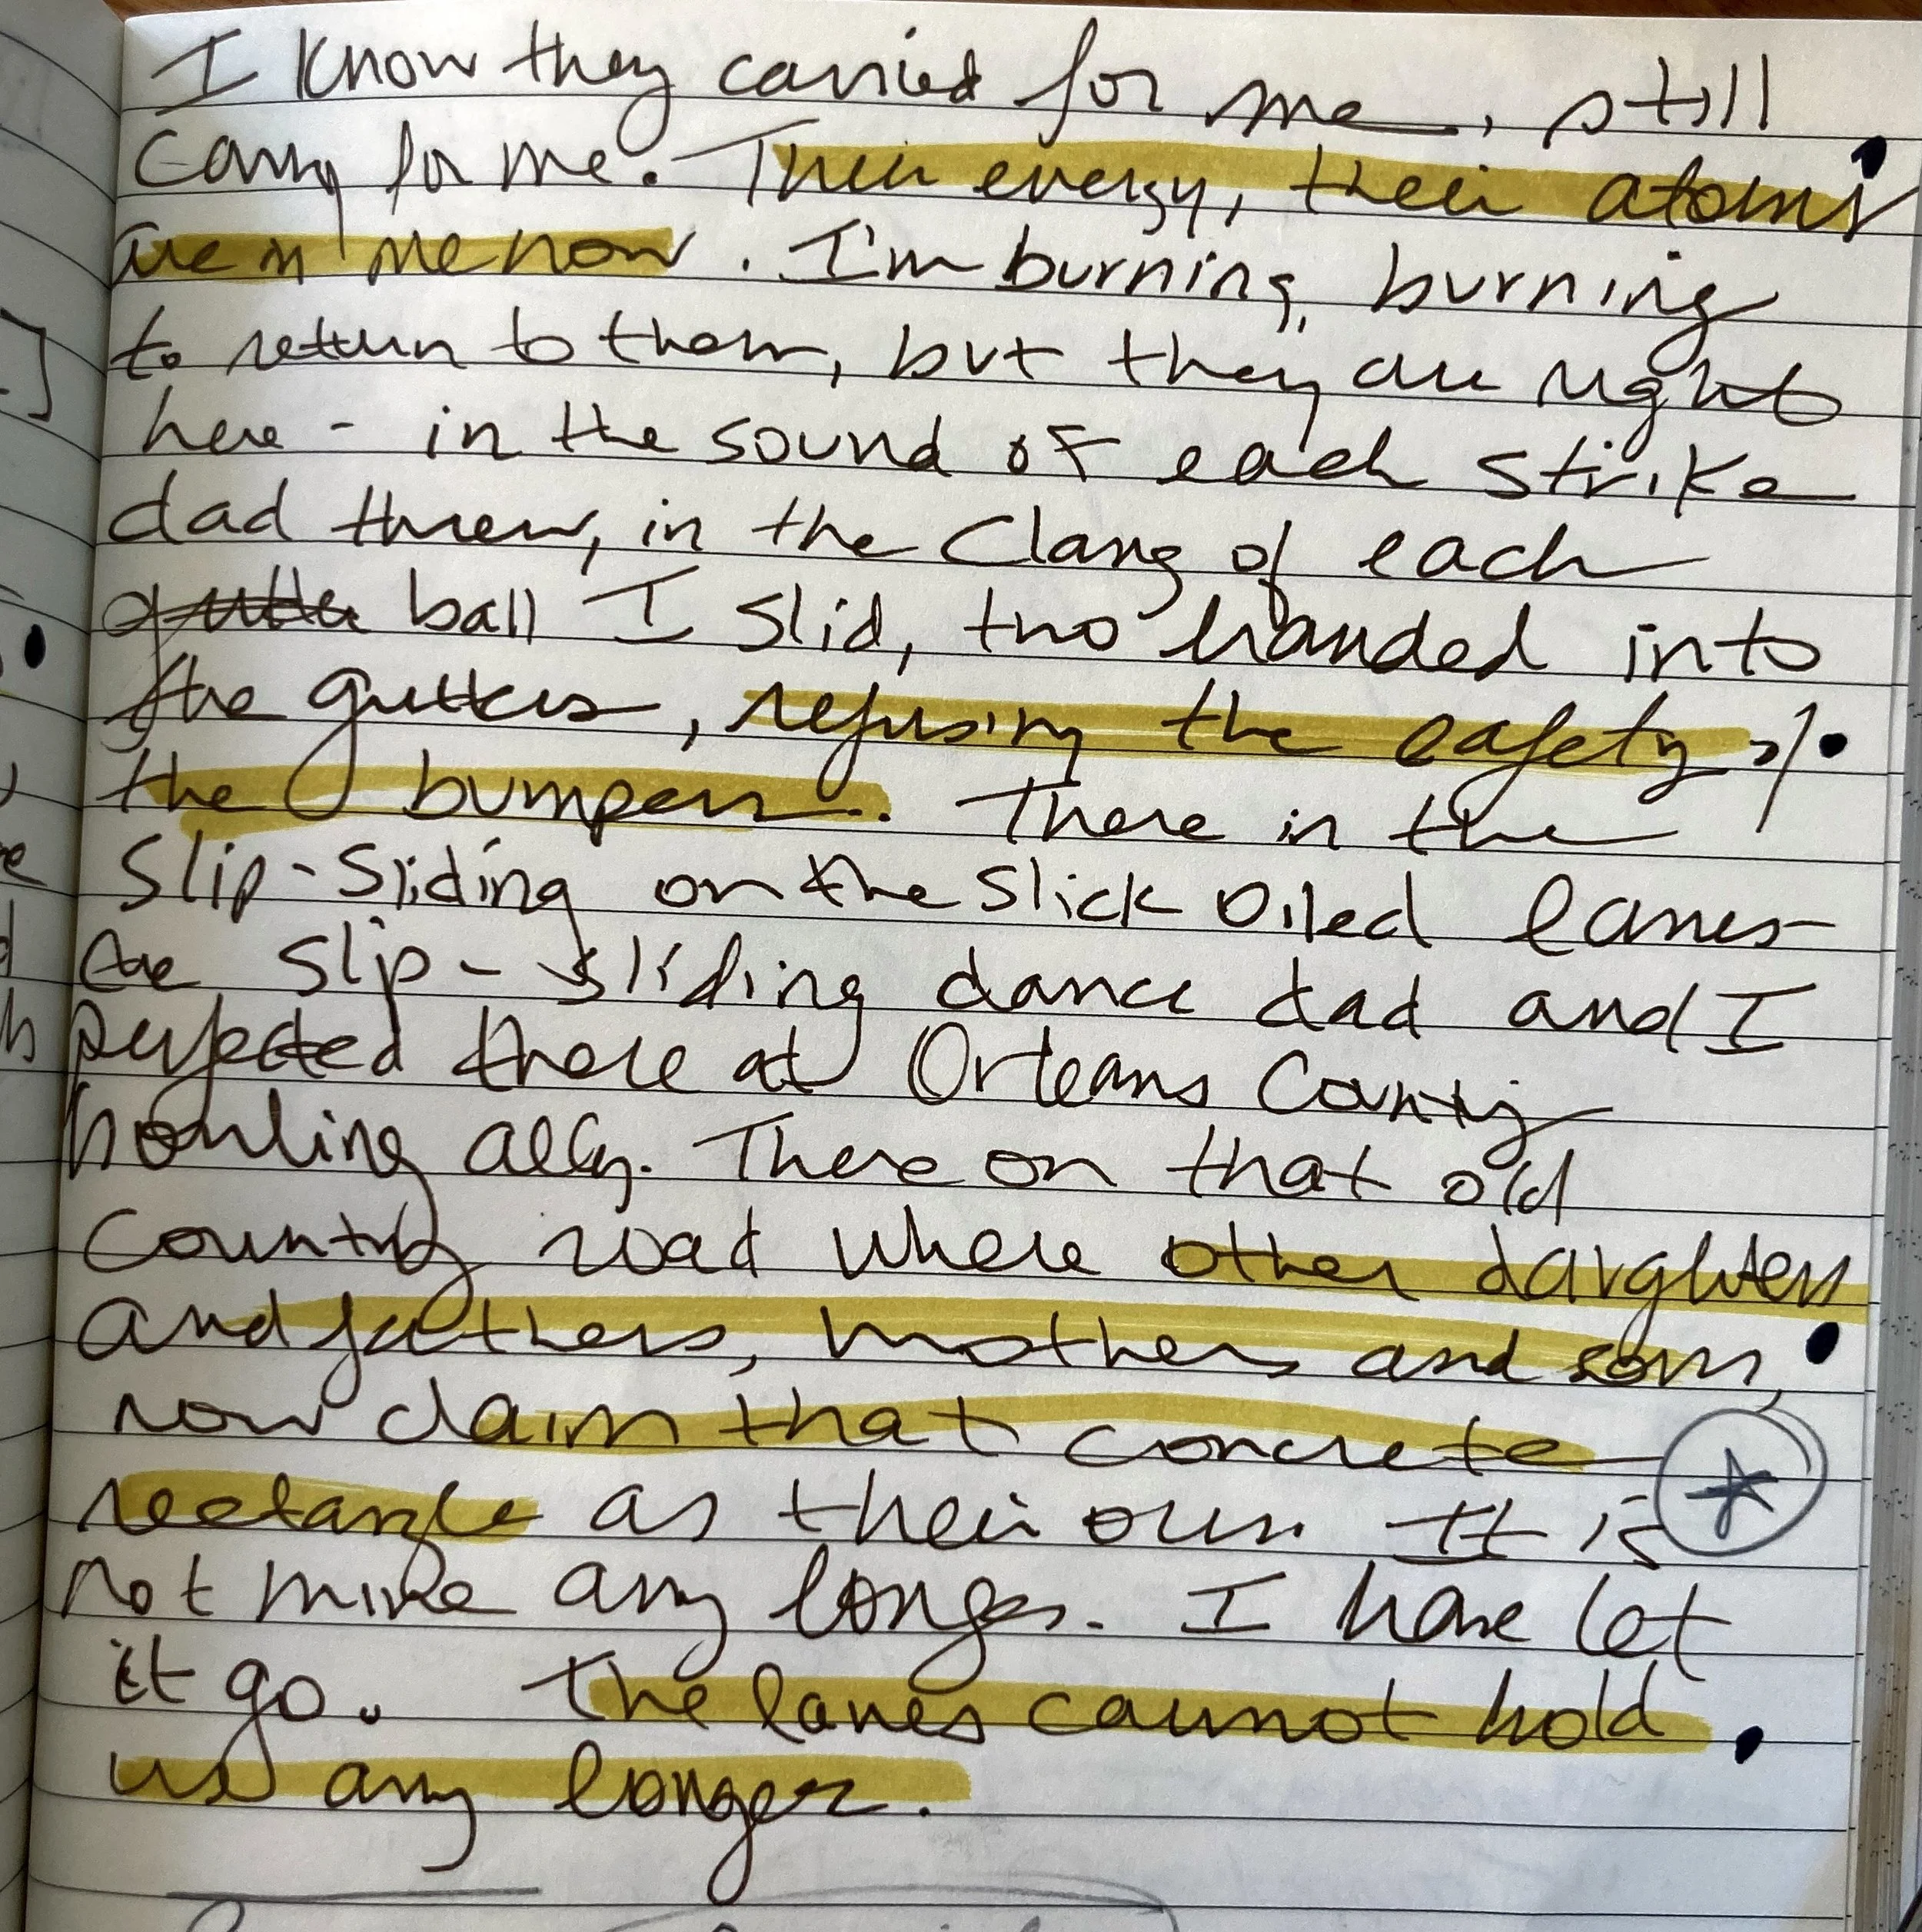 I know they carried for me, still
carry for me. Their energy, their atoms
are in me now. I'm burning, burning
to return to them, but they are right
here - in the sound of each strike
dad threw, in the clang of each
gutter ball I slid, two handed into
the gutters, refusing the safety of
the bumpers. There in the
slip-sliding on the slick oiled lanes-
the slip-sliding dance dad and I
perfected there at Orleans County
bowling ally. There on that old
country road where other daughters
and fathers, mothers and sons,
now claim that concrete
rectangle as their own. It is
not mine any longer. I have let
it go. The lanes cannot hold
us any longer.